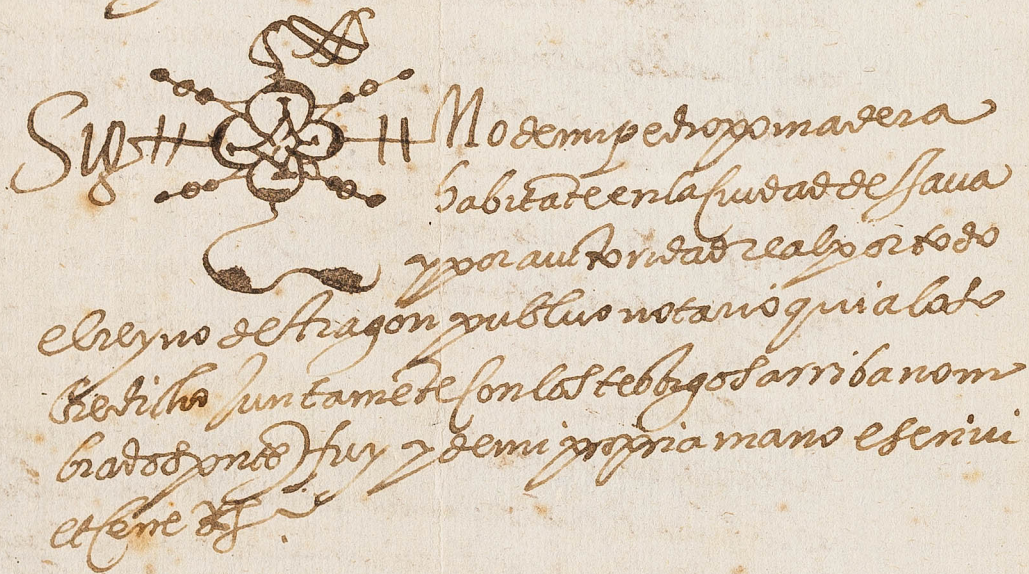 Sig No de mi pedro ximadera
habitāte en la ciudad de Jaca
y por auctoridad real por todo
el reyno de Aragon publico notario qui a lo so
bredicho Juntamēte con los tes gos arriba nom
brados pnte fuy y de mi propria mano escriui
et cerre